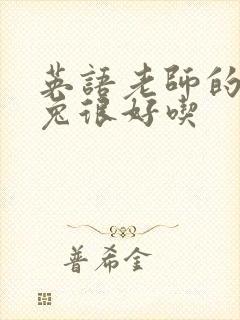 英語老師的
兔很好喫
普希金